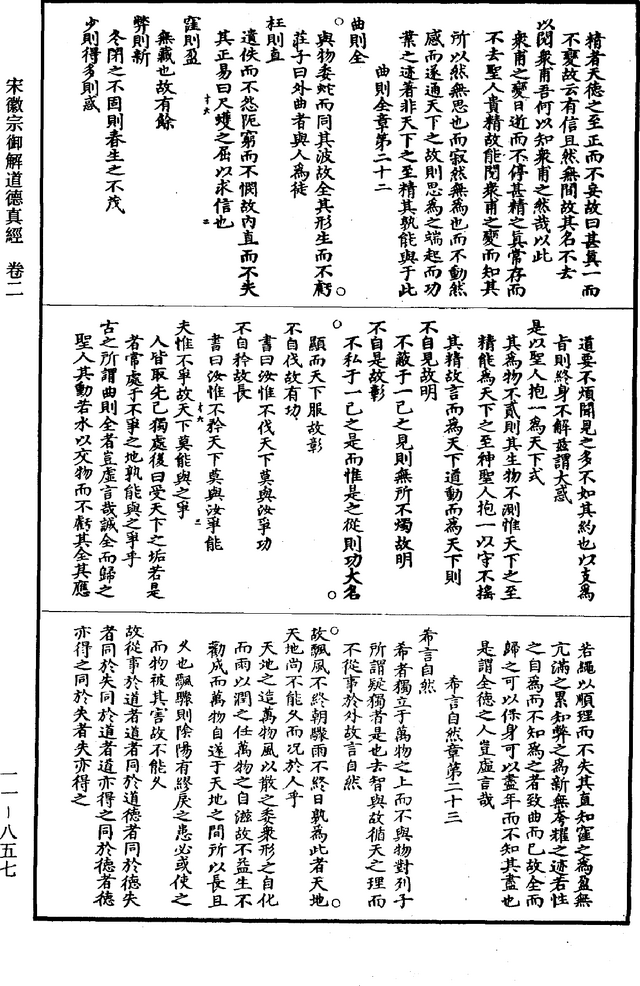 精者天德之至正而不妄故曰甚真一而
不變故云有信且然無間故其名不去
以閱衆甫吾何以知衆甫之然哉以此
衆甫之變日逝而不停甚精之真常存而
不去聖人貴精故能閱衆甫之變而知其
所以然無思也而寂然無為也而不動然
感而遂通天下之故則思為之端起而功
業之迹著非天下之至精其孰能與于此
曲則全章第二十二
曲則全
與物委蛇而同其波故全其形生而不虧
莊子曰外曲者與人為徒
枉則直
遺佚而不怨阨窮而不憫故內直而不失
其正易曰尺蠖之屈以求信也
窪則盈
無藏也故有餘
弊則新
冬閉之不固則春生之不茂
少則得多則惑
道要不煩聞見之多不如其約也以支為
旨則終身不解茲謂大惑
是以聖人抱一為天下式
其為物不貳則其生物不測惟天下之至
精能為天下之至神聖人抱一以守不搖
其精故言而為天下道動而為天下則
不自見故明
不蔽于一己之見則無所不燭故明
不自是故彰
不私于一己之是而惟是之從則功大名
顯而天下服故彰
不自伐故有功
書曰汝惟不伐天下莫與汝爭功
不自矜故長
書曰汝惟不矜天下莫與汝爭能
夫惟不爭故天下莫能與之爭
人皆取先己獨處後曰受天下之垢若是
者常處于不爭之地孰能與之爭乎
古之所謂曲則全者豈虛言哉誠全而歸之
聖人其動若水以交物而不虧其全其應
若繩以順理而不失其直知窪之為盈無
亢滿之累知弊之為新無夸耀之迹若性
之自為而不知為之者致曲而已故全而
歸之可以保身可以盡年而不知其盡也
是謂全德之人豈虛言哉
希言自然章第二十三
希言自然
希者獨立于萬物之上而不與物對列子
所謂疑獨者是也去智與故循天之理而
不從事於外故言自然
故飄風不終朝驟雨不終日孰為此者天地
天地尚不能久而況於人乎
天地之造萬物風以散之委衆形之自化
而雨以潤之任萬物之自滋故不益生不
勸成而萬物自遂于天地之間所以長且
久也飄驟則陰陽有繆戾之患必或使之
而物被其害故不能久
故從事於道者道者同於道德者同於德失
者同於失同於道者道亦得之同於德者德
亦得之同於失者失亦得之
宋徽宗御解道德真經 卷二
一一–八五七